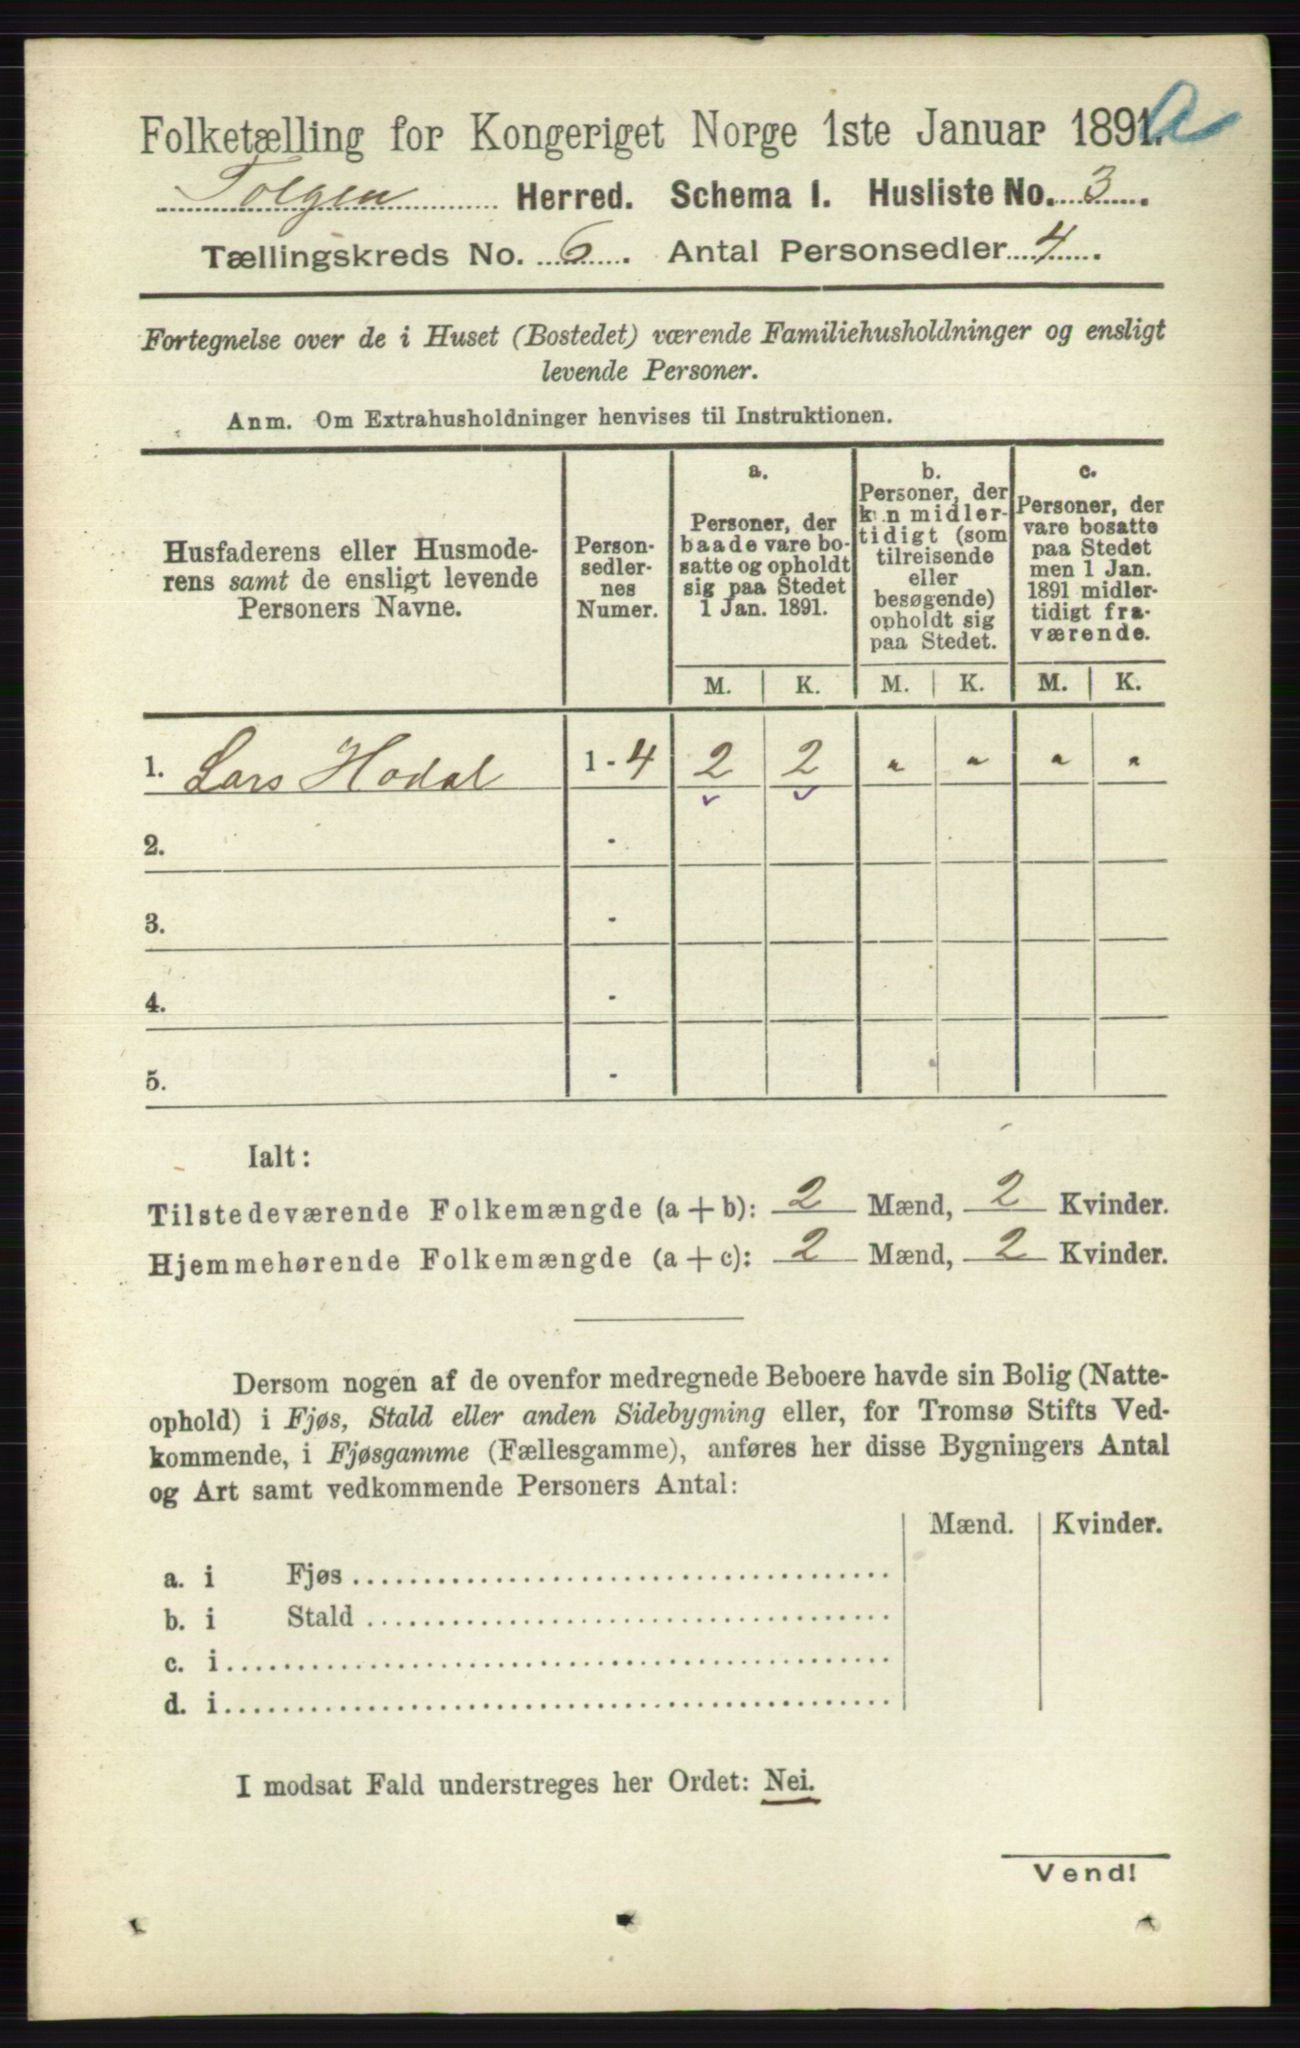 Folketælling for Kongeriget Norge 1ste Januar 1891. a
Tolgen Herred. Schema I. Husliste No. 3.
Tællingskreds No. 6. Antal Personsedler 4.
Fortegnelse over de i Huset (Bostedet) værende Familiehusholdninger og ensligt
levende Personer.
Anm. Om Extrahusholdninger henvises til Instruktionen.
Husfaderens eller Husmode-
rens samt de ensligt levende
Personers Navne.
Person-
sedler-
nes
Numer.
a.
Personer, der
baade vare bo-
satte og opholdt
sig paa Stedet
1 Jan. 1891.
b.
Personer, der
kun midler-
tidigt (som
tilreisende
eller
besøgende)
opholdt sig
paa Stedet.
c.
Personer, der
vare bosatte
paa Stedet
men 1 Jan.
1891 midler-
tidigt fra-
værende.
M. K. M. K. M. K.
1. Lars Hodal 1 - 4 2 2 " " " "
2. -
3. -
4. -
5. -
Ialt:
Tilstedeværende Folkemængde (a + b): 2 Mænd, 2 Kvinder.
Hjemmehørende Folkemængde (a + c): 2 Mænd, 2 Kvinder.
Dersom nogen af de ovenfor medregnede Beboere havde sin Bolig (Natte-
ophold) i Fjøs, Stald eller anden Sidebygning eller, for Tromsø Stifts Ved-
kommende, i Fjøsgamme (Fællesgamme), anføres her disse Bygningers Antal
og Art samt vedkommende Personers Antal:
Mænd. Kvinder.
a. i Fjøs
b. i Stald
c. i
d. i
I modsat Fald understreges her Ordet: Nei.
Vend!